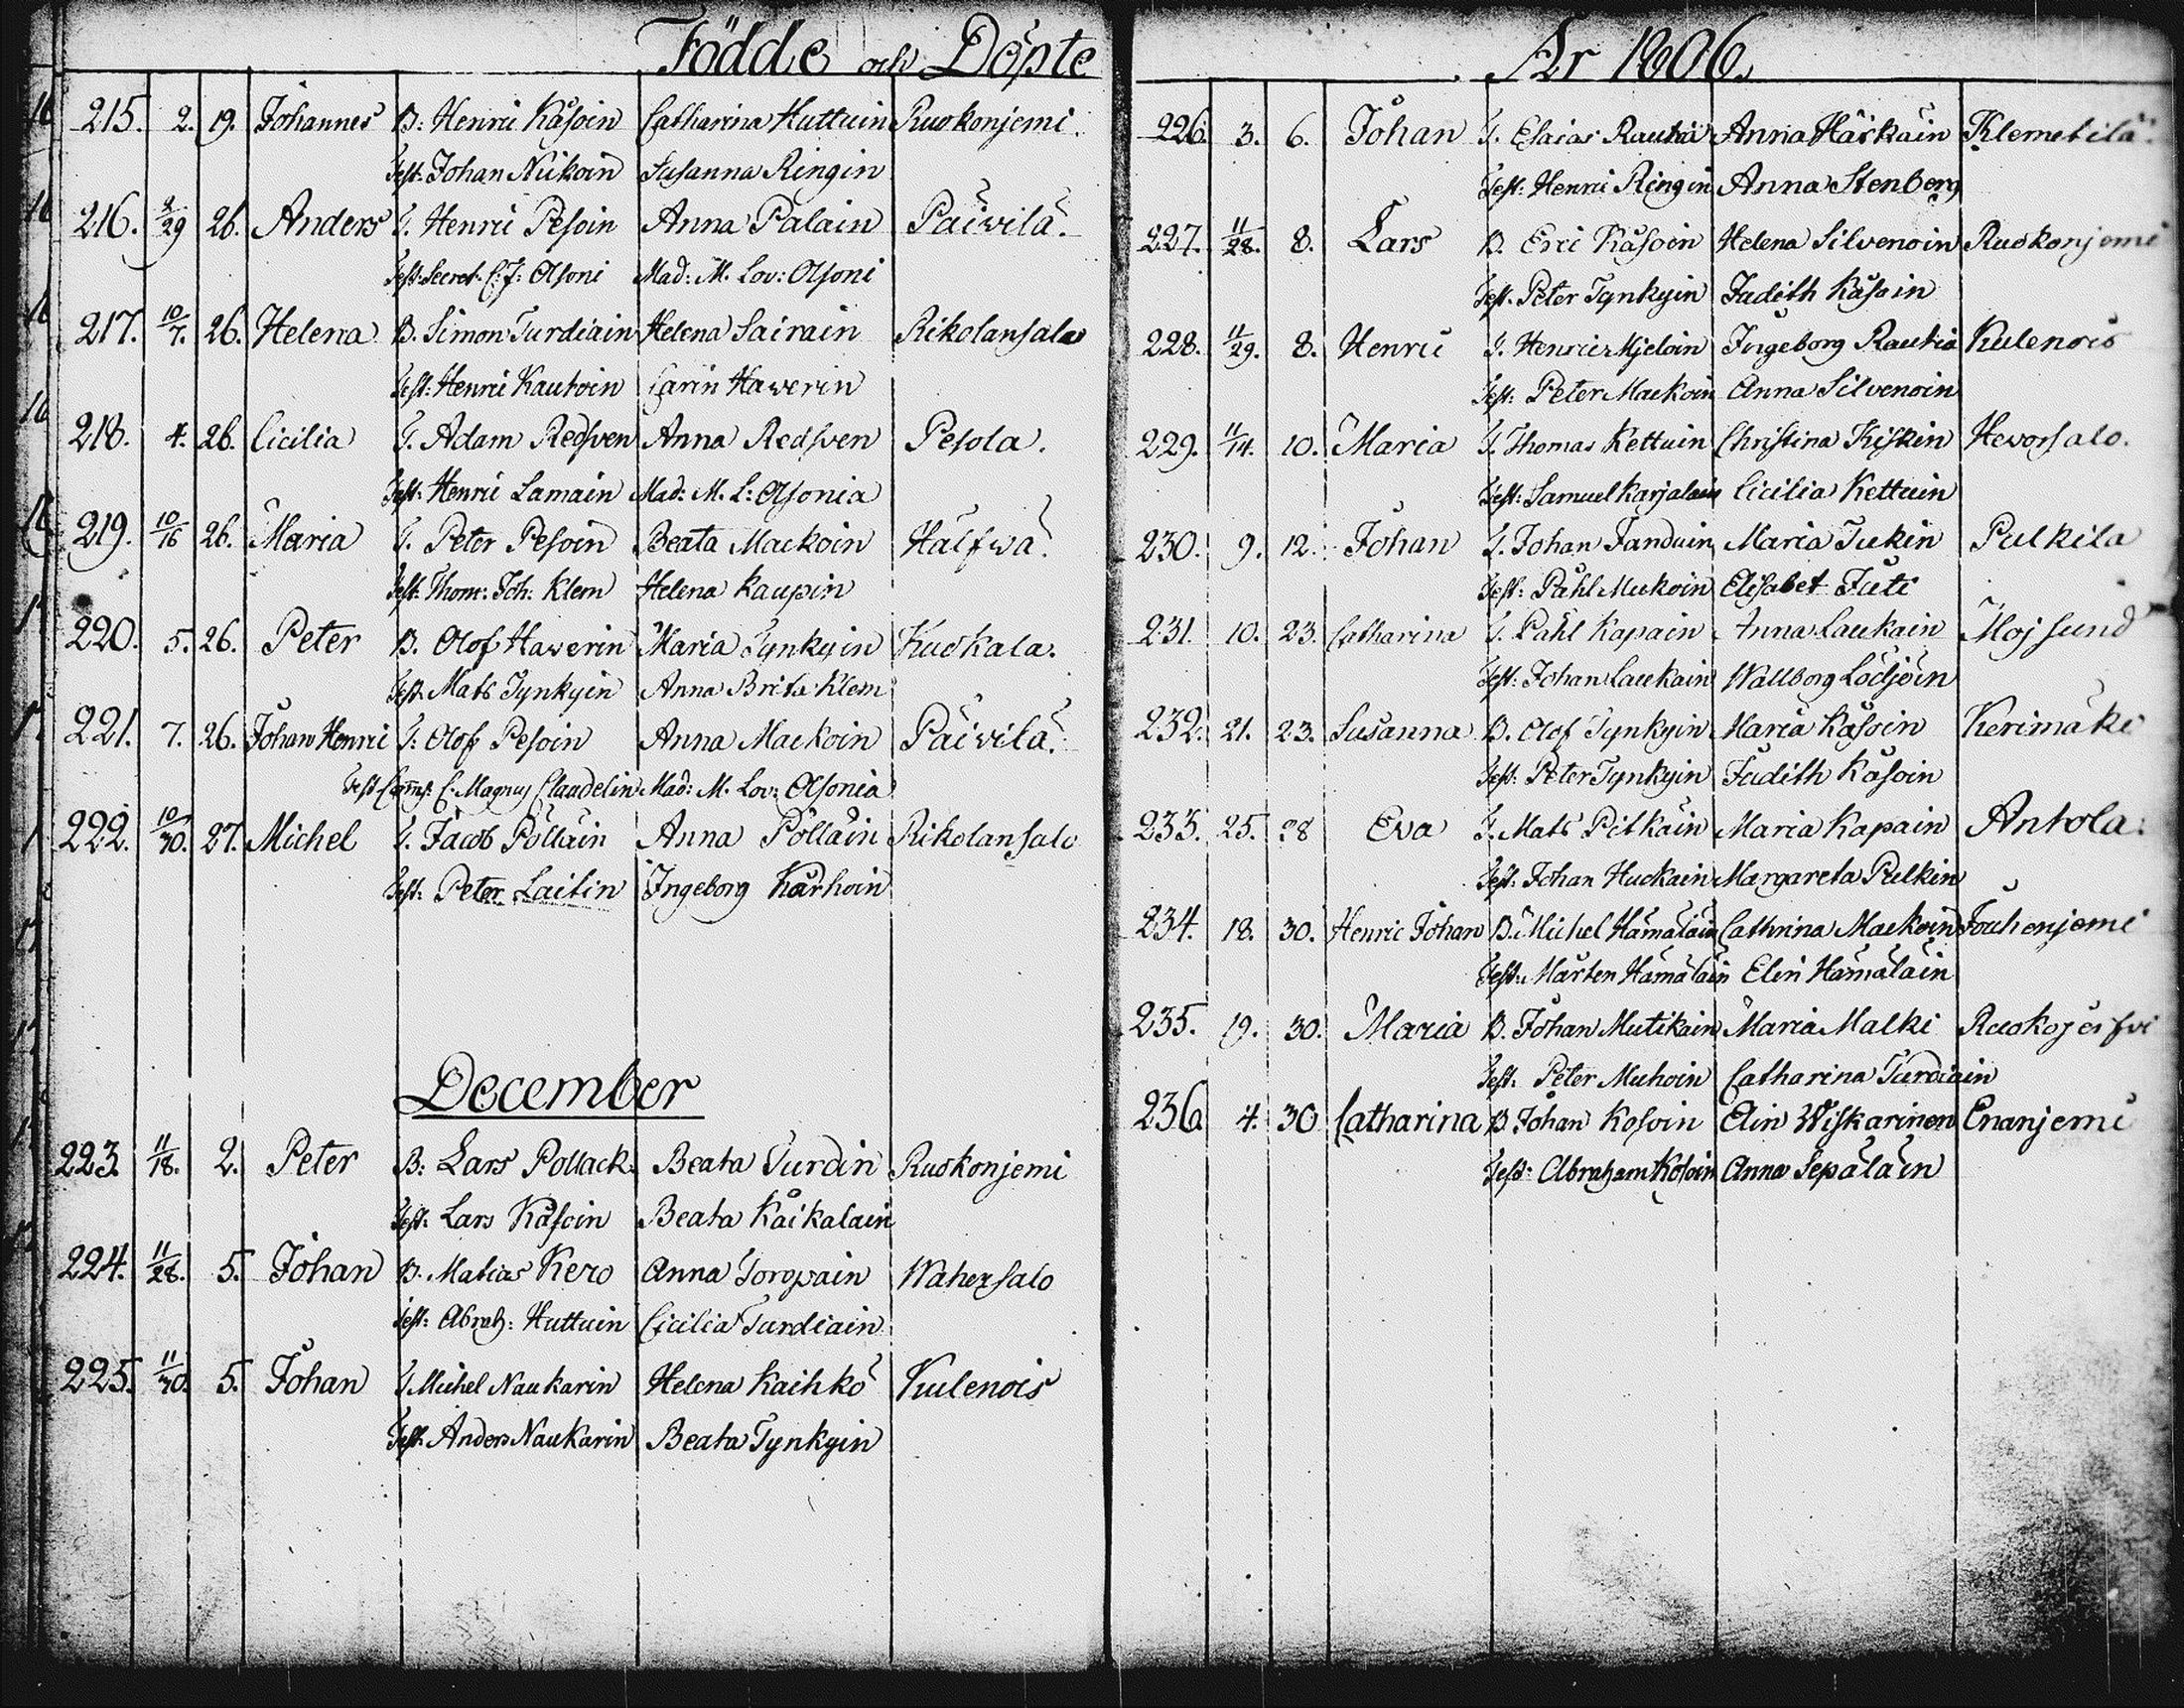 Födde och Döpte
215. 2. 19. Johannes B: Henric Käsoin Catharina Huttuin Ruokonjemi.
Test: Johan Nickoin Susanna Ringin
216. 26. Anders T. Henric Pesoin Anna Palain Päivilä.
Test: Secret. C: J: Alsoni Mad: M. Lov: Alsoni
217. 10/7. 26. Helena B. Simon Turdiain Helena Sairain Rikolansalo
Test: Henric Kautoin Carin Haverin
218. 4. 26. Cicilia T. Adam Redsven Anna Redsven Pesola.
Test: Henric Lamain Mad: M. L: Alsonia
219. 10/16 26. Maria T. Peter Pesoin Beata Mackoin Hälfwä.
Test: Thom: Joh: Klem Helena Kaupin
220. 5. 26. Peter B. Olof Haverin Maria Tynkyin Kuokala.
Test: Mats Tynkyin Anna Brita Klem
221. 7. 26. Johan Henric T: Olof Pesoin Anna Mackoin Päivilä.
Test C: Magnus Claudelin Mad: M. Lov: Alsonia
222. 10/30. 27. Michel T. Jacob Pölläin Anna Pölläin Rikolansalo
Test: Peter Laitin Ingeborg Kärhoin
December
223 11/18. 2. Peter B: Lars Pollack Beata Turdin Ruokonjemi
Test: Lars Käsoin Beata Kaikalain
224. 11/28. 5. Johan B. Matias Kero Anna Toropain Wahersalo
Test: Abrah: Huttuin Cicilia Turdiain
225. 11/30. 5. Johan T. Michel Naukarin Helena Kaihko Kulenois
Test: Anders Naukarin Beata Tynkyin
År 1806.
226. 3. 6. Johan T. Esaias Rautiä Anna Härkäin Klemetilä.
Test: Henric Ringin Anna Stenberg
227. 11/28. 8. Lars B. Eric Käsoin Helena Silvenoin Ruokonjemi
Test. Peter Tynkyin Judith Käsoin
228. 11/29. 8. Henric T. Henric Mjeloin Ingeborg Rautia Kulenois
Test: Peter Mackoin Anna Silvenoin
229. 11/14. 10. Maria T. Thomas Kettuin Christina Kiskin Hevorsalo.
Test: Samuel Karjalain Cicilia Kettuin
230. 9. 12. Johan T. Johan Janduin Maria Tukin Pulkila
Test: Påhl Muckoin Elisabet Juti
231. 10. 23. Catharina T. Påhl Kapain Anna Laukain Mojsund
Test: Johan Laukain Wallborg Lödjöin
232. 21. 23. Susanna B. Olof Tynkyin Maria Käsoin Kerimäki
Test: Peter Tynkyin Judith Käsoin
233. 25. 28 Eva T. Mats Pitkäin Maria Kapain Antola.
Test: Johan Huckain Margareta Pulkin
234. 18. 30. Henric Johan B. Michel Hämäläin Cathrina Mackoin Jouhenjemi
Test: Mårten Hämäläin Elin Hämäläin
235. 19. 30. Maria B. Johan Mutikain Maria Malki Ruokojerfvi
Test: Peter Muhoin Catharina Turdiain
236 4. 30 Catharina B. Johan Kosoin Elin Wiskarinen Enanjemi
Test: Abraham Kosoin Anna Sepäläin